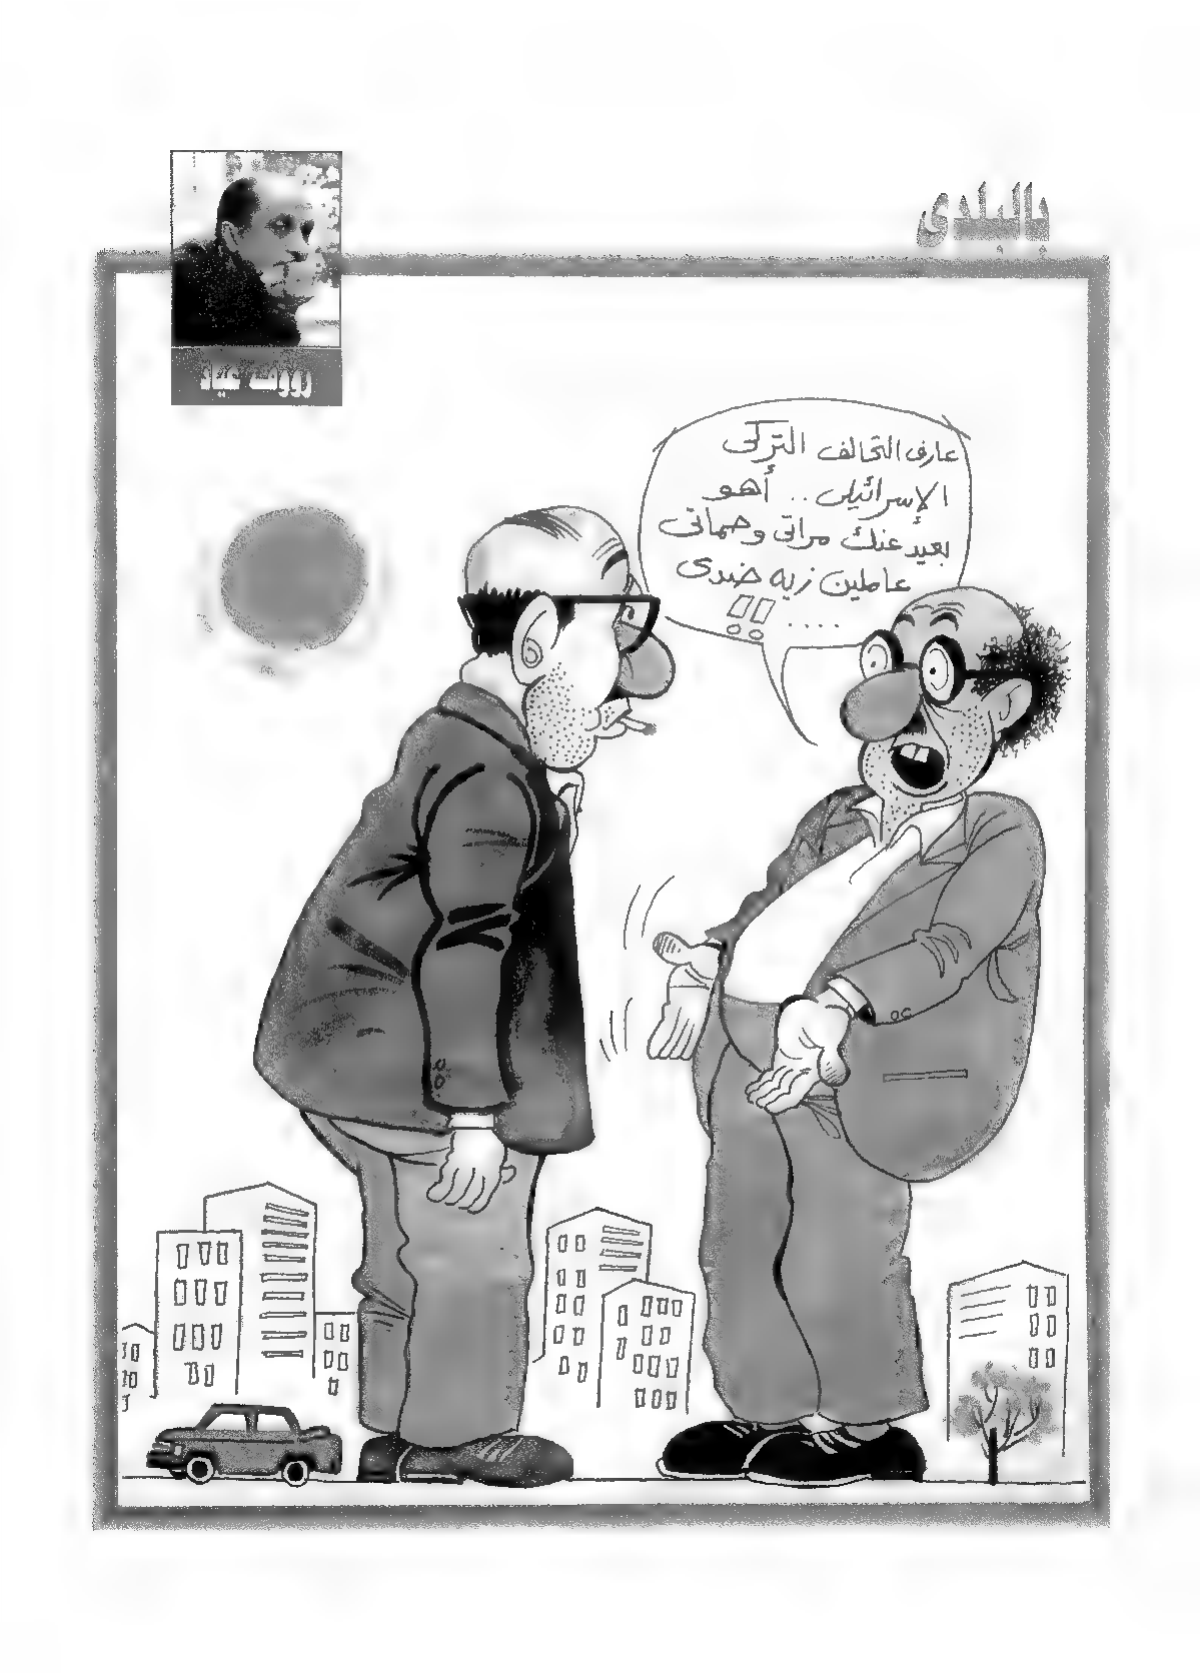 بالبلدى
رؤوف عياد
عارف التحالف التركى
الإسرائيلى .. أهو
بعيد عنك مراتى وحماتى
عاملين زيه ضدى
.... !!